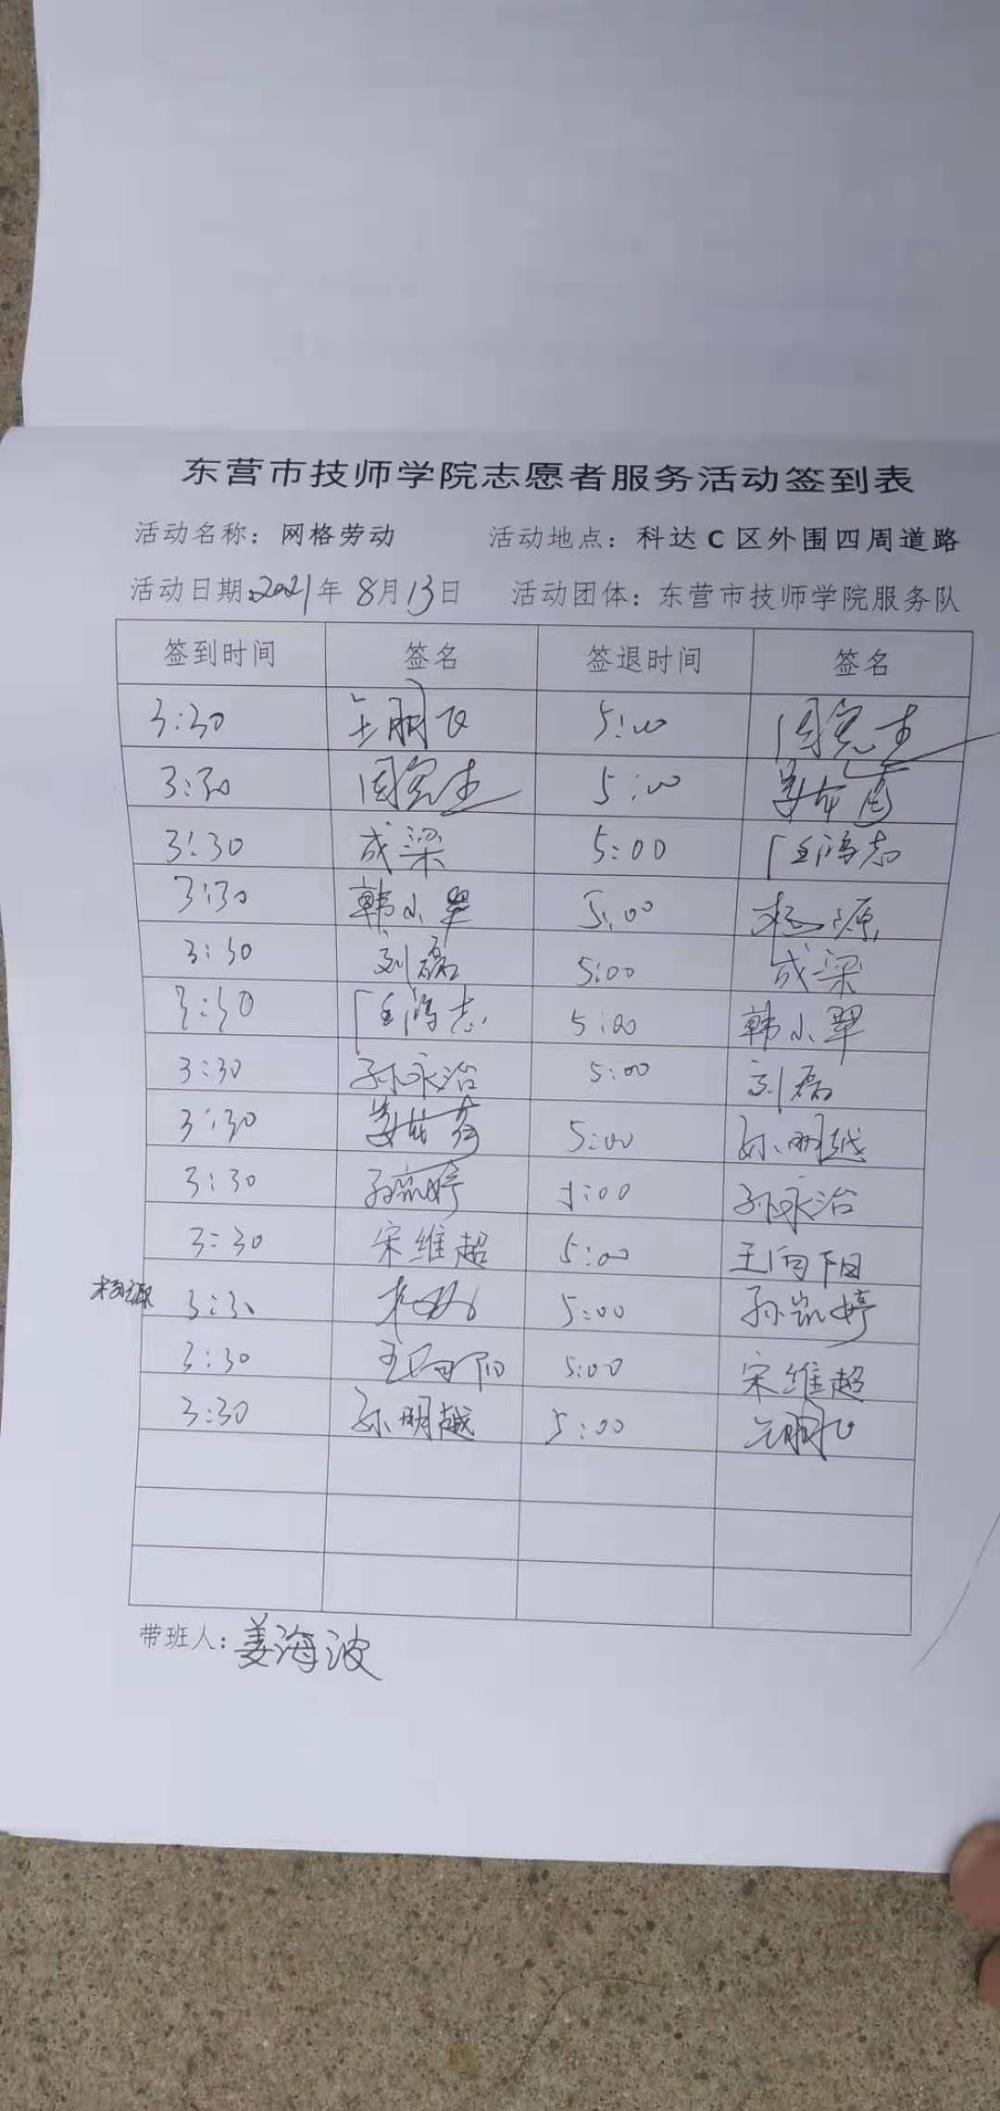 东营市技师学院志愿者服务活动签到表
活动名称：网格劳动 活动地点：科达 C 区外围四周道路
活动日期：2021年 8月13日 活动团体：东营市技师学院服务队
签到时间 签名 签退时间 签名
3:30 王朋飞 5:00 周宪杰
3:30 周宪杰 5:00
3:30 成梁 5:00 志
3:30 韩小翠 5:00 杨源
3:30 刘磊 5:00 成梁
3:30 志 5:00 韩小翠
3:30 孙永治 5:00 刘磊
3:30 5:00 孙明越
3:30 孙凯婷 5:00 孙永治
3:30 宋维超 5:00 王向阳
杨源 3:30 5:00 孙凯婷
3:30 王向阳 5:00 宋维超
3:30 孙明越 5:00 王朋飞
带班人：姜海波